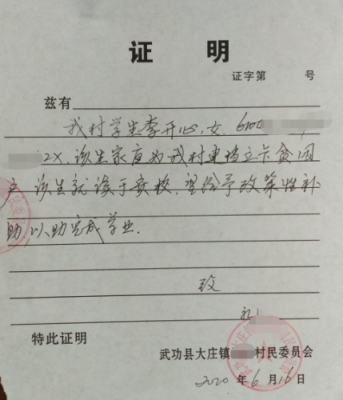 证 明
证字第 号
兹有
我村学生李开心,女,6100
2X,该生家庭为我村建档立卡贫困
户,该生就读于贵校,望给予政策性补
助,以助完成学业.
致
礼
特此证明
武功县大庄镇 村民委员会
2020 年 6 月 10 日